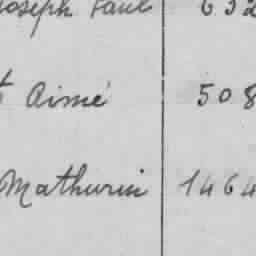 Joseph Paul 632
t Aimé 508
Mathurin 1464